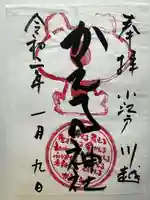 奉拝 小江戸 川越
かえる神社
令和二年 一月九日